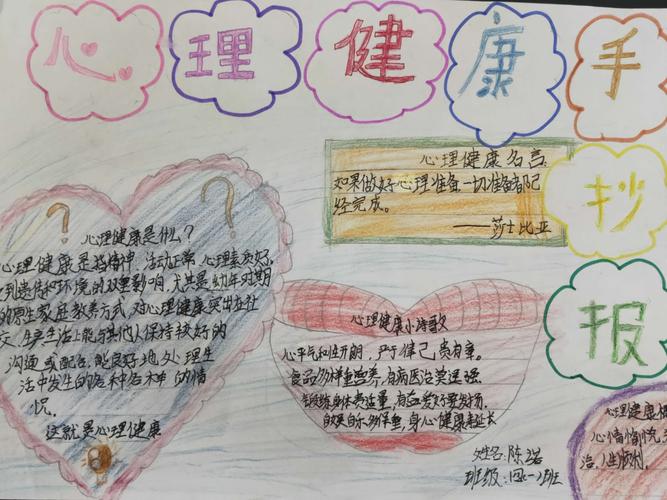 心理健康手
抄
报
心理健康名言:
如果做好心理准备一切准备都已
经完成。
——莎士比亚
? ?
心理健康是什么?
心理健康是指精神、活动正常、心理素质好。
到遗传和环境的双重影响,尤其是幼年时期
的原生家庭教养方式,对心理健康突出在社
交、生产生活上能与其他人保持较好的
沟通或配合,能良好地处理生
活中发生的各种各样的情
况。
这就是心理健康
心理健康小诗歌
心平气和性开朗,严于律己贵有幸。
食品多样重营养,有病医治莫逞强。
锻炼身体贵适量,有益爱好要发扬。
自寻自乐,身心健康寿延长
姓名:陈诺
班级:四(一)班
心理健康
心情愉悦
治、人生顺利。